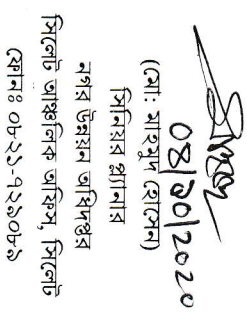 ০৪/১০/২০২০
(মো: মাহমুদ হোসেন)
সিনিয়র প্ল্যানার
নগর উন্নয়ন অধিদপ্তর
সিলেট আঞ্চলিক অফিস, সিলেট
ফোনঃ ০৮২১-৭২১০৮১